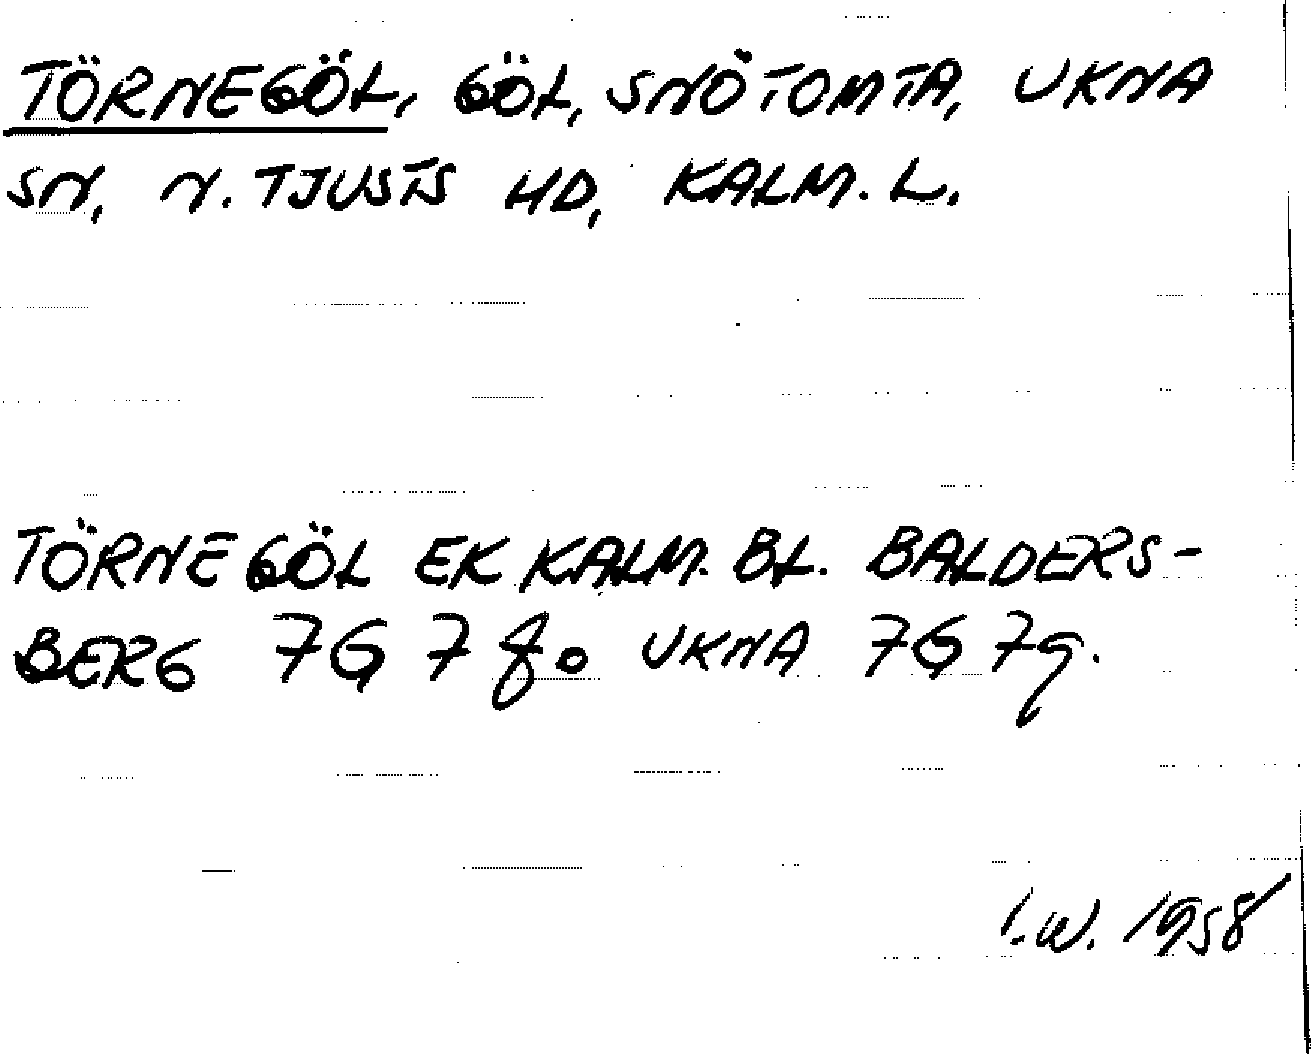 TÖRNEGÖL, GÖL, SNÖTOMTA, UKNA
SN, N. TJUSTS HD, KALM. L.
TÖRNEGÖL EK KALM. BL. BALDERS-
BERG 7G 7f. UKNA 7G 7g.
I.W. 1958